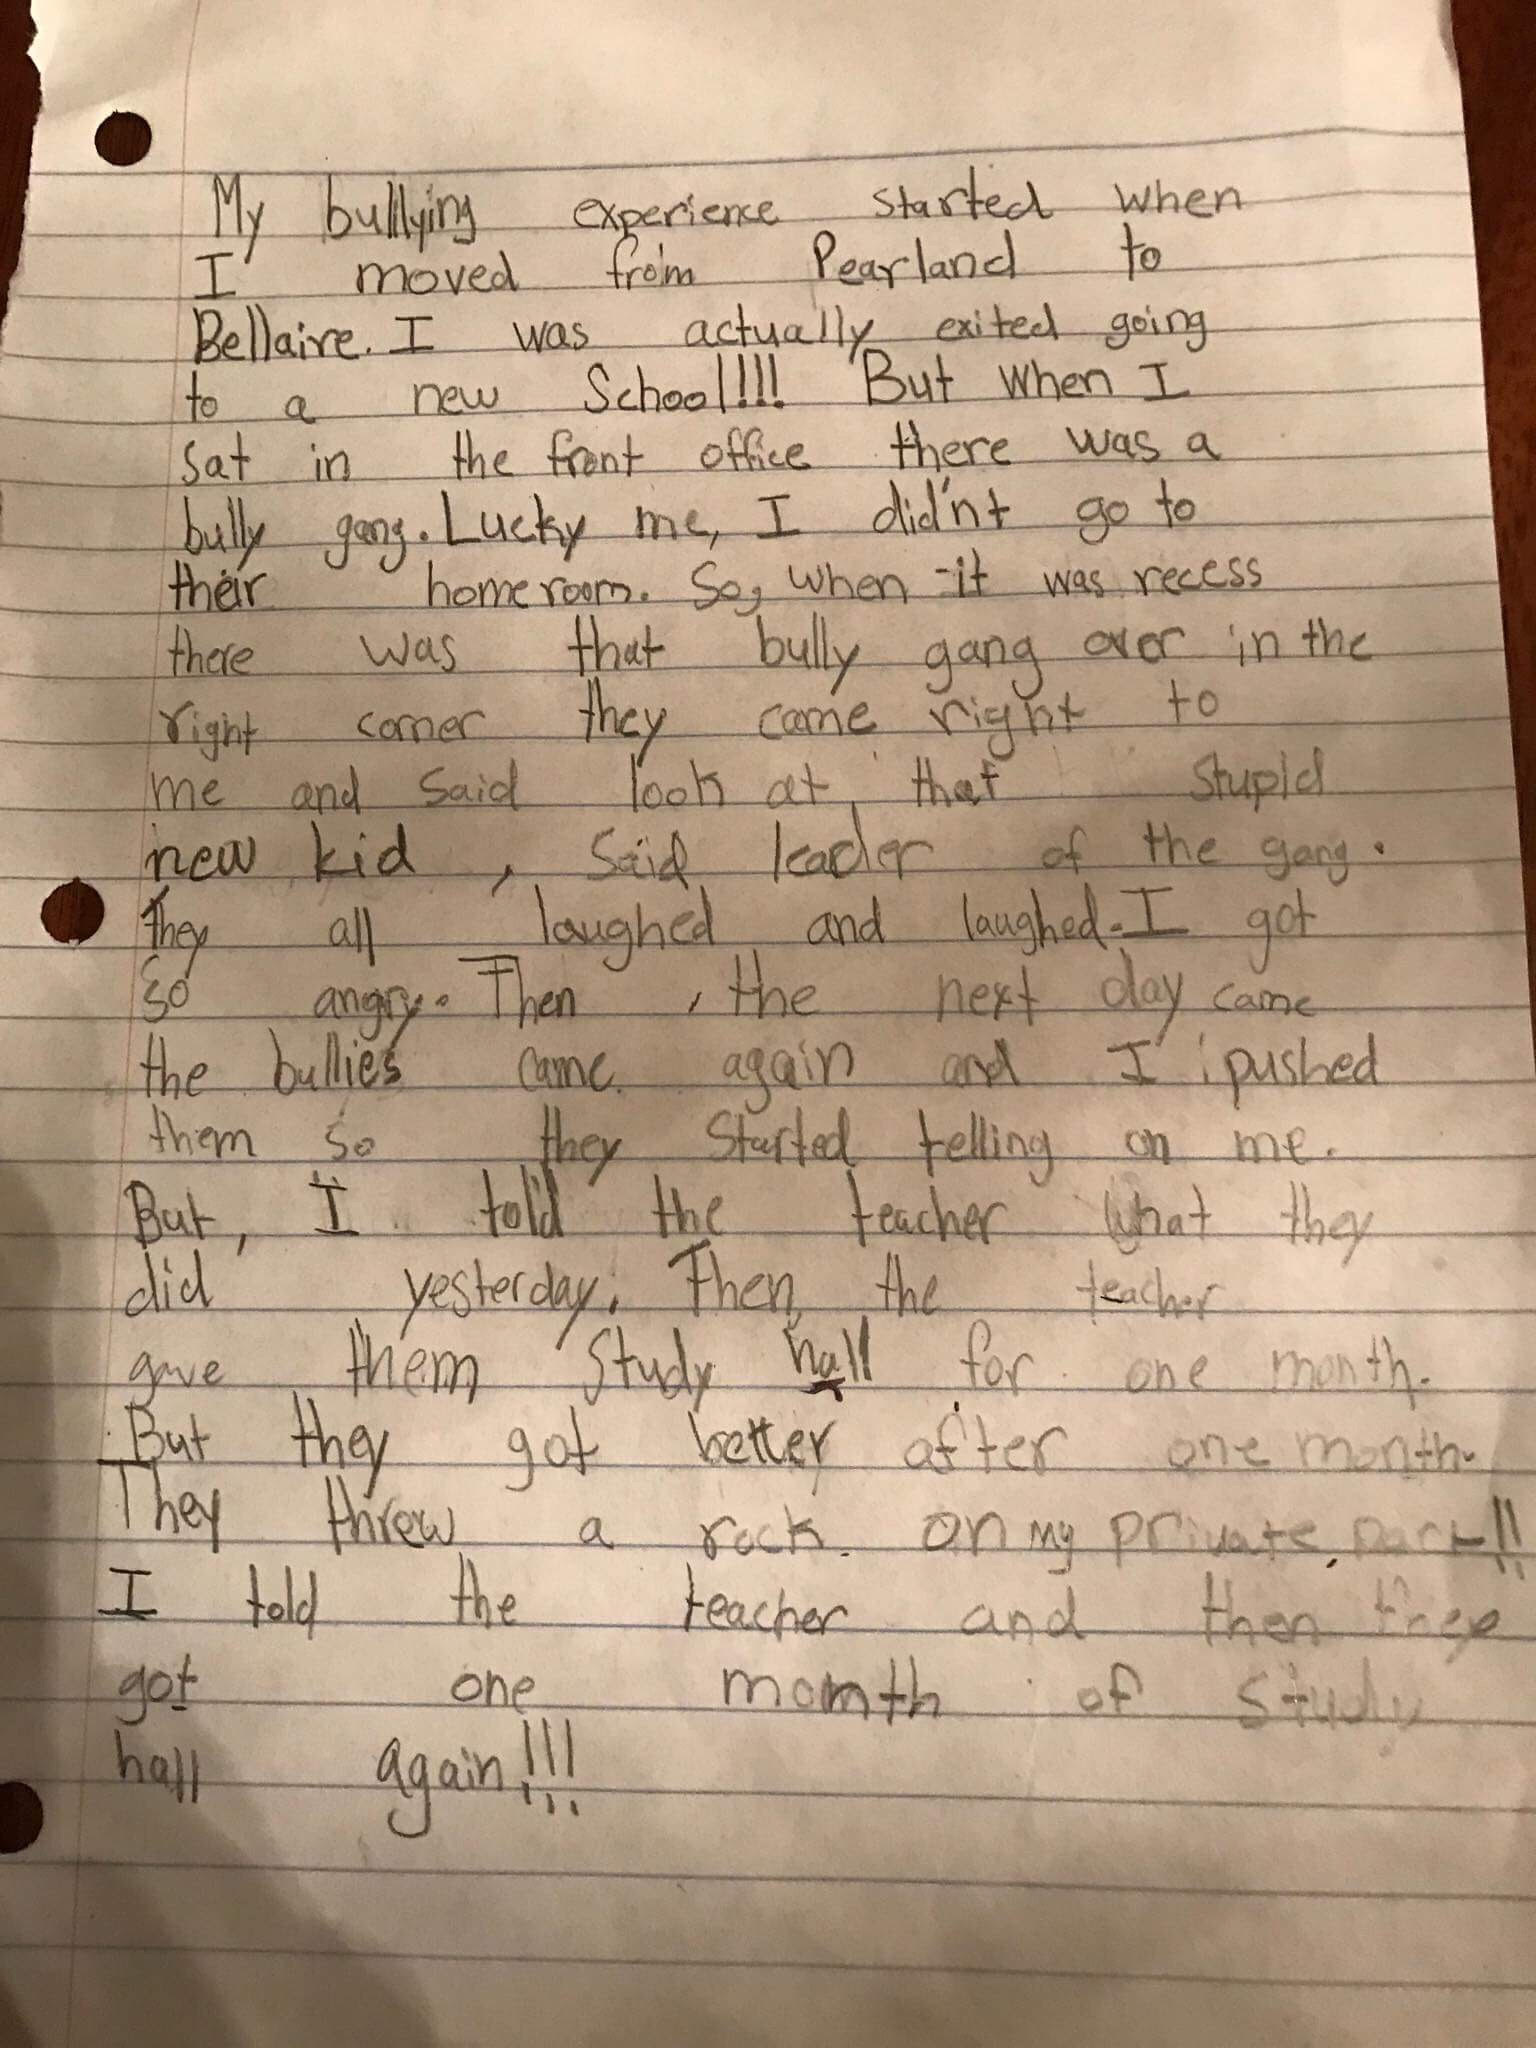 My bulllying experience started when
I moved from Pearland to
Bellaire. I was actually exited going
to a new School!!! But when I
sat in the front office there was a
bully gang. Lucky me, I did'nt go to
their homeroom. So, when it was recess
there was that bully gang over in the
right corner they came right to
me and said look at that stupid
new kid, said leader of the gang.
They all laughed and laughed. I got
so angry. Then, the next day came
the bullies came again and I pushed
them so they started telling on me.
But, I told the teacher what they
did yesterday. Then, the teacher
gave them study hall for one month.
But they got better after one month.
They threw a rock on my private part!!
I told the teacher and then they
got one month of study
hall again!!!